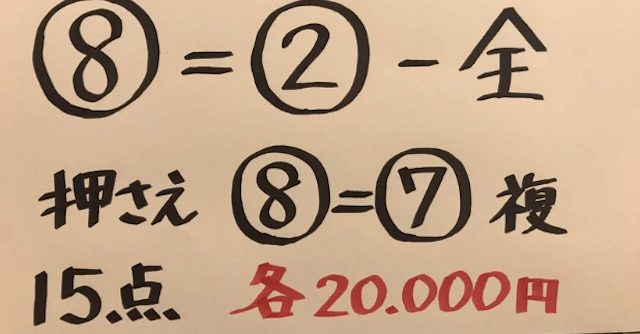 ⑧=②-全
押さえ ⑧=⑦ 複
15点 各20.000円